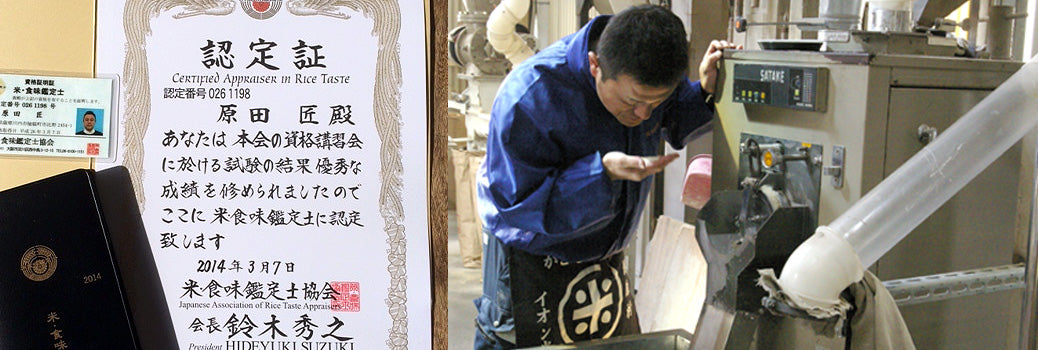 認定証
CERTIFIED APPRAISER IN RICE TASTE
認定番号 026 1198
原田 匠 殿
あなたは 本会の資格講習会
に於ける試験の結果 優秀な
成績を修められましたので
ここに 米・食味鑑定士に認定
致します
2014年3月7日
米・食味鑑定士協会
Japanese Association of Rice Taste Appraisers
会長 鈴木秀之
President HIDEYUKI SUZUKI
資格証明書
米・食味鑑定士
定番号 026 1198 号
原田 匠
食味鑑定士協会
2014
米・食味
SATAKE
米
イオン